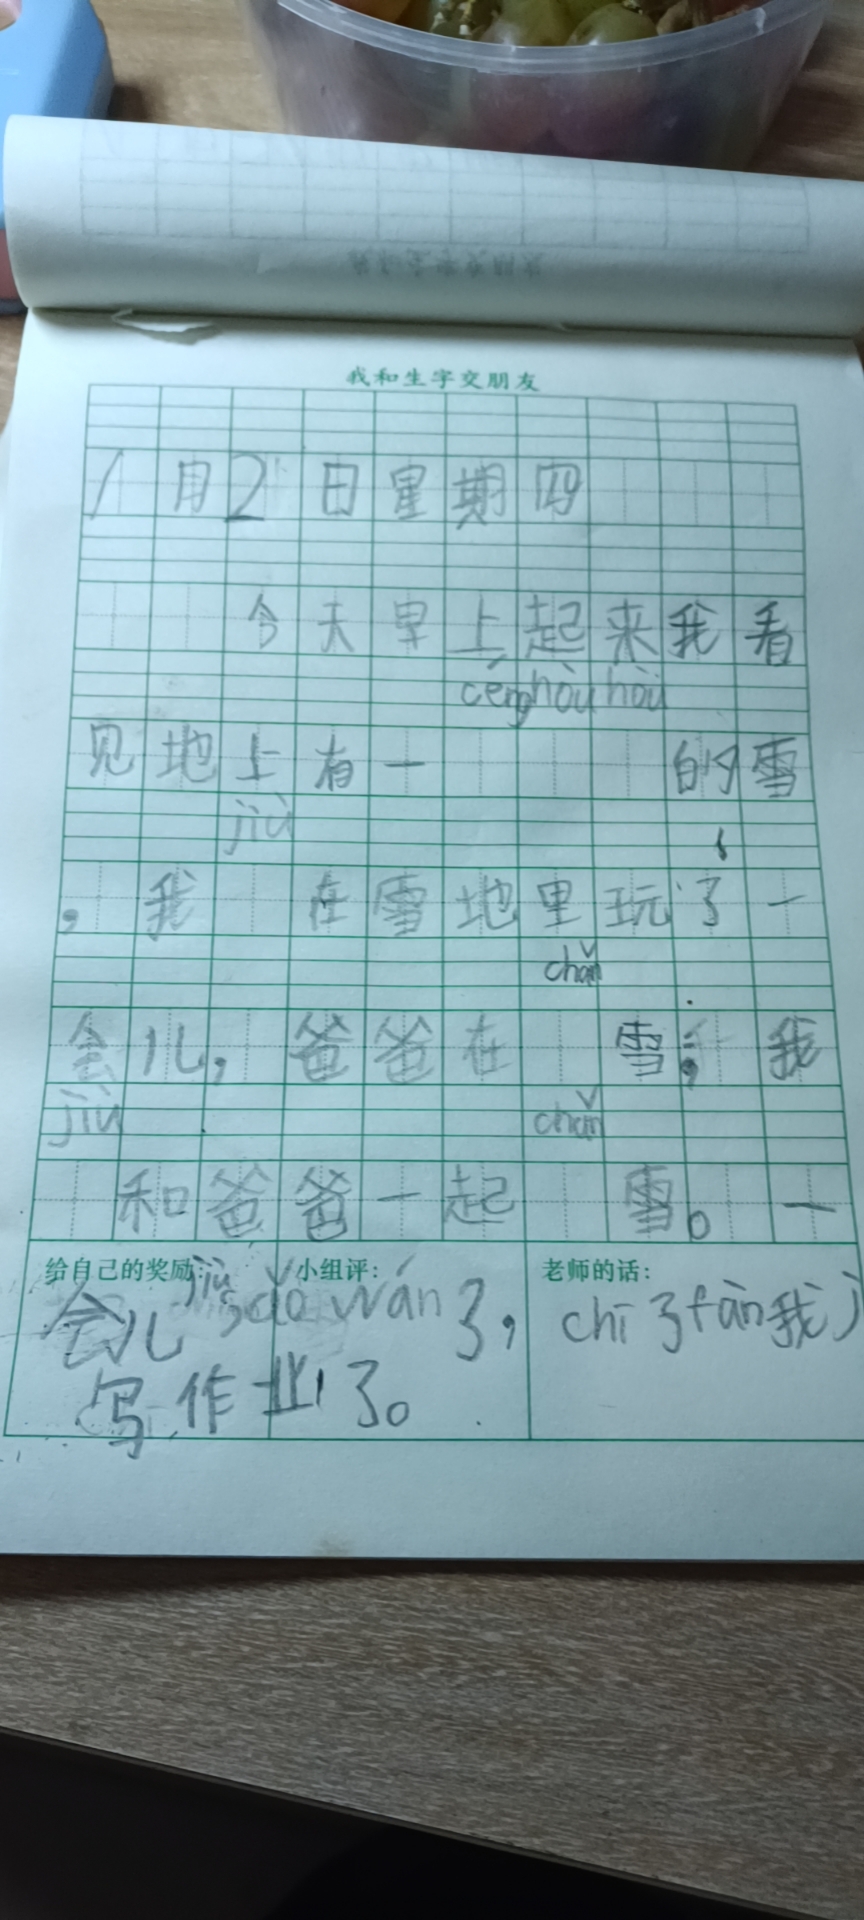 我和生字交朋友
1月2日星期四
今天早上起来我看
cénghòuhòu
见地上有一 的雪
jiù
,我 在雪地里玩了一
chǎn
会儿,爸爸在 雪;我
jiù chǎn
和爸爸一起 雪。一
给自己的奖励: 小组评: 老师的话:
会儿jiù sǎo wán了,chī了fàn我j
写作业了。